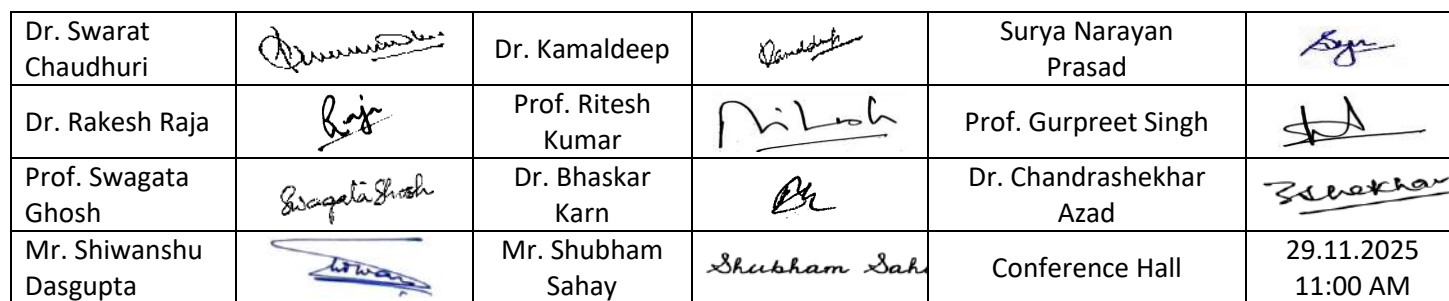 Dr. Swarat
Chaudhuri
Dr. Kamaldeep
Surya Narayan
Prasad
Dr. Rakesh Raja
Raja
Prof. Ritesh
Kumar
Prof. Gurpreet Singh
Prof. Swagata
Ghosh
Swagata Ghosh
Dr. Bhaskar
Karn
Dr. Chandrashekhar
Azad
Mr. Shiwanshu
Dasgupta
Mr. Shubham
Sahay
Shubham Saha
Conference Hall
29.11.2025
11:00 AM